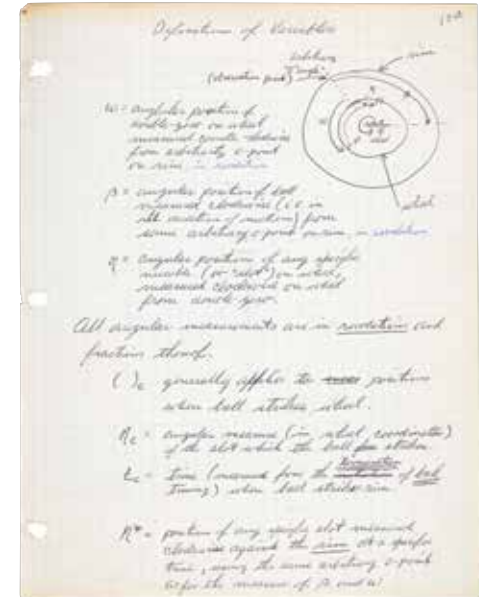 Definition of Variables
arbitrary
(observation point)
rim
ω = angular position of
double-zero on wheel
measured counter clockwise
from arbitrary 0-point
on rim, in revolutions
β = angular position of ball
measured clockwise (i.e. in
direction of motion) from
same arbitrary 0-point on rim, in revolutions
η = angular position of any specific
number (or "slot") on wheel,
measured clockwise on wheel
from double-zero.
wheel
All angular measurements are in revolutions and
fractions thereof.
( )c generally applies to positions
when ball strikes wheel.
ηc = angular measure (in wheel coordinates)
of the slot which the ball strikes
tc = time (measured from the of ball
timing) when ball strikes rim
η* = position of any specific slot measured
clockwise against the rim at a specific
time, using the same arbitrary 0-point
as for the measure of β and ω.